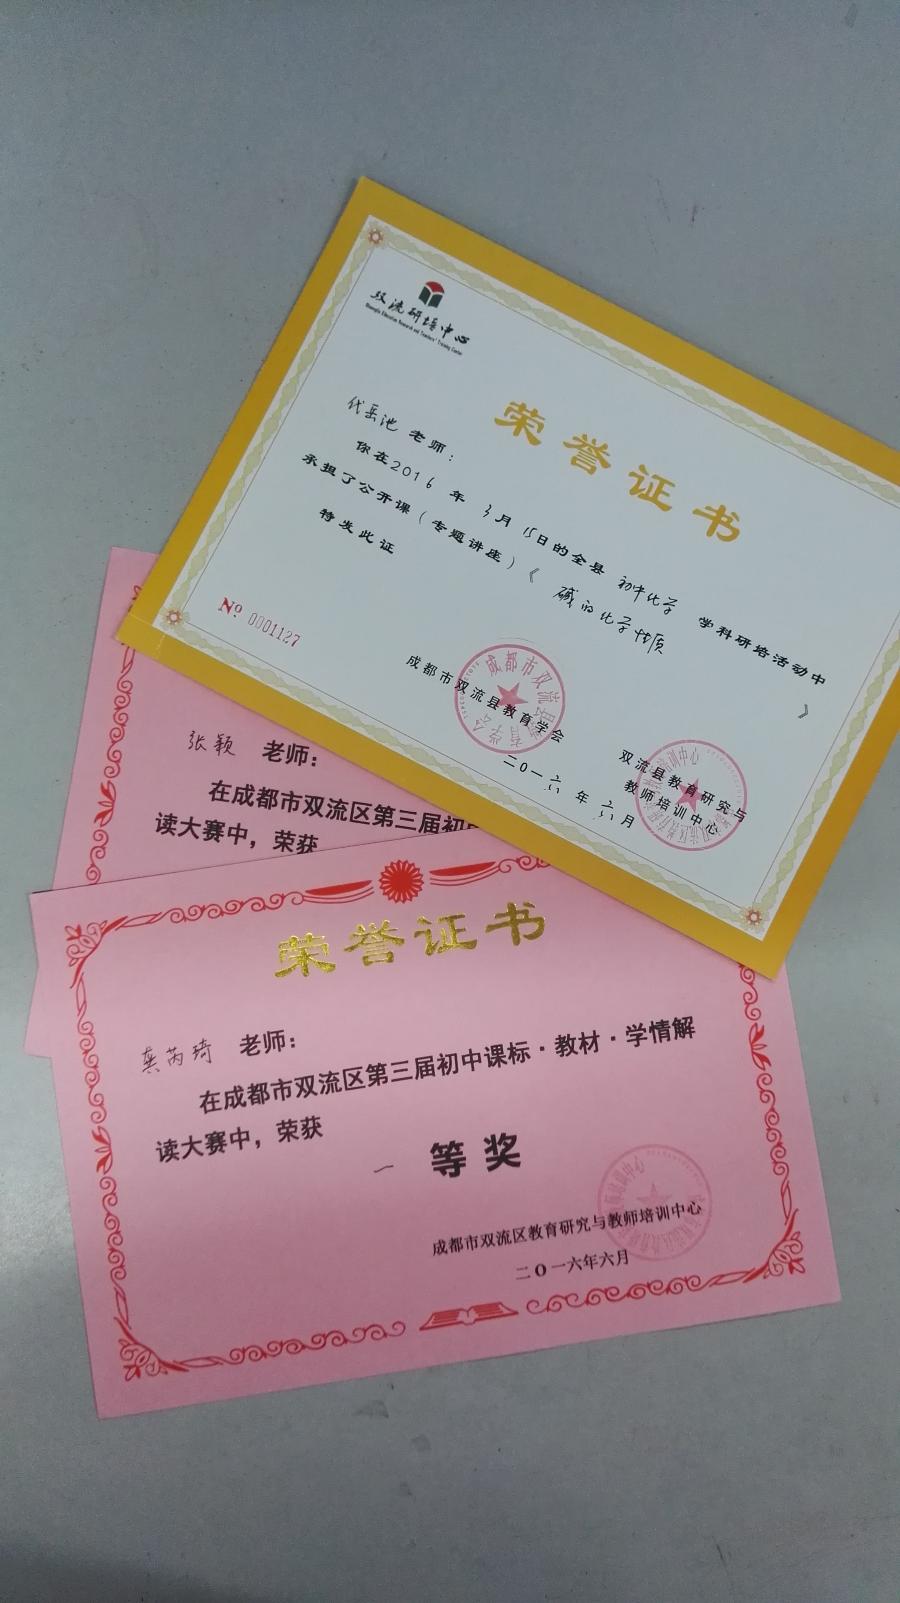 双流研培中心
Shuangliu Education Research and Teachers' Training Center
荣誉证书
代岳池 老师：
你在2016 年 3月 15日的全县 初中化学 学科研培活动中
承担了公开课（专题讲座）《 碱的化学性质 》
特发此证
No 0001127
成都市双流县教育学会
双流县教育研究与
教师培训中心
二〇一六年六月
张颖 老师：
在成都市双流区第三届初
读大赛中，荣获
荣誉证书
龚芮琦 老师：
在成都市双流区第三届初中课标·教材·学情解
读大赛中，荣获
一 等奖
成都市双流区教育研究与教师培训中心
二〇一六年六月